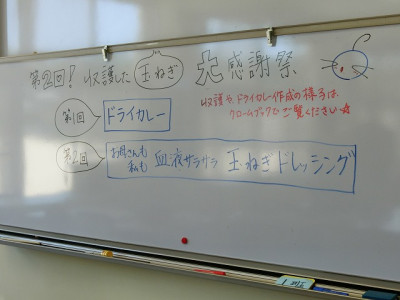 第2回！収護した玉ねぎ 大感謝祭
収護や、ドライカレー作成の様子は
クロームブックでご覧ください☆
第1回 ドライカレー
第2回 お母さんも 私も 血液サラサラ 玉ねぎドレッシング
1班